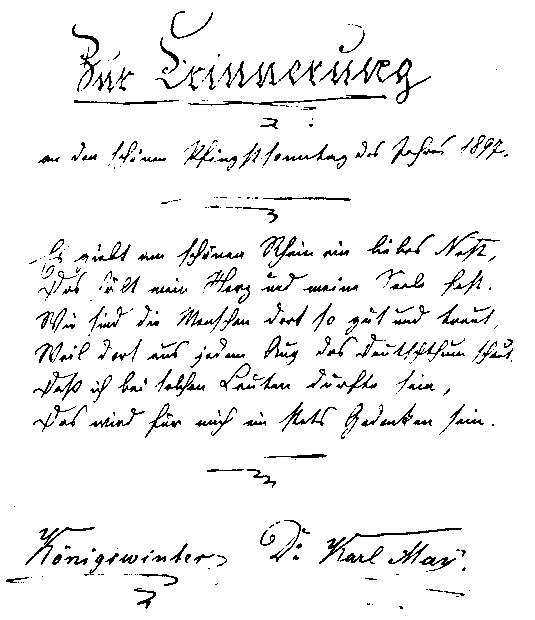 Zur Erinnerung
an den schönen Pfingstsonntag des Jahres 1897.
Es giebt am schönen Rhein ein liebes Nest,
Das hält mein Herz und meine Seele fest.
Wie sind die Menschen dort so gut und traut,
Weil dort aus jedem Aug das Deutschthum schaut.
Daß ich bei solchen Leuten durfte sein,
Das wird für mich ein stets Gedenken sein.
Königswinter Dr. Karl May.